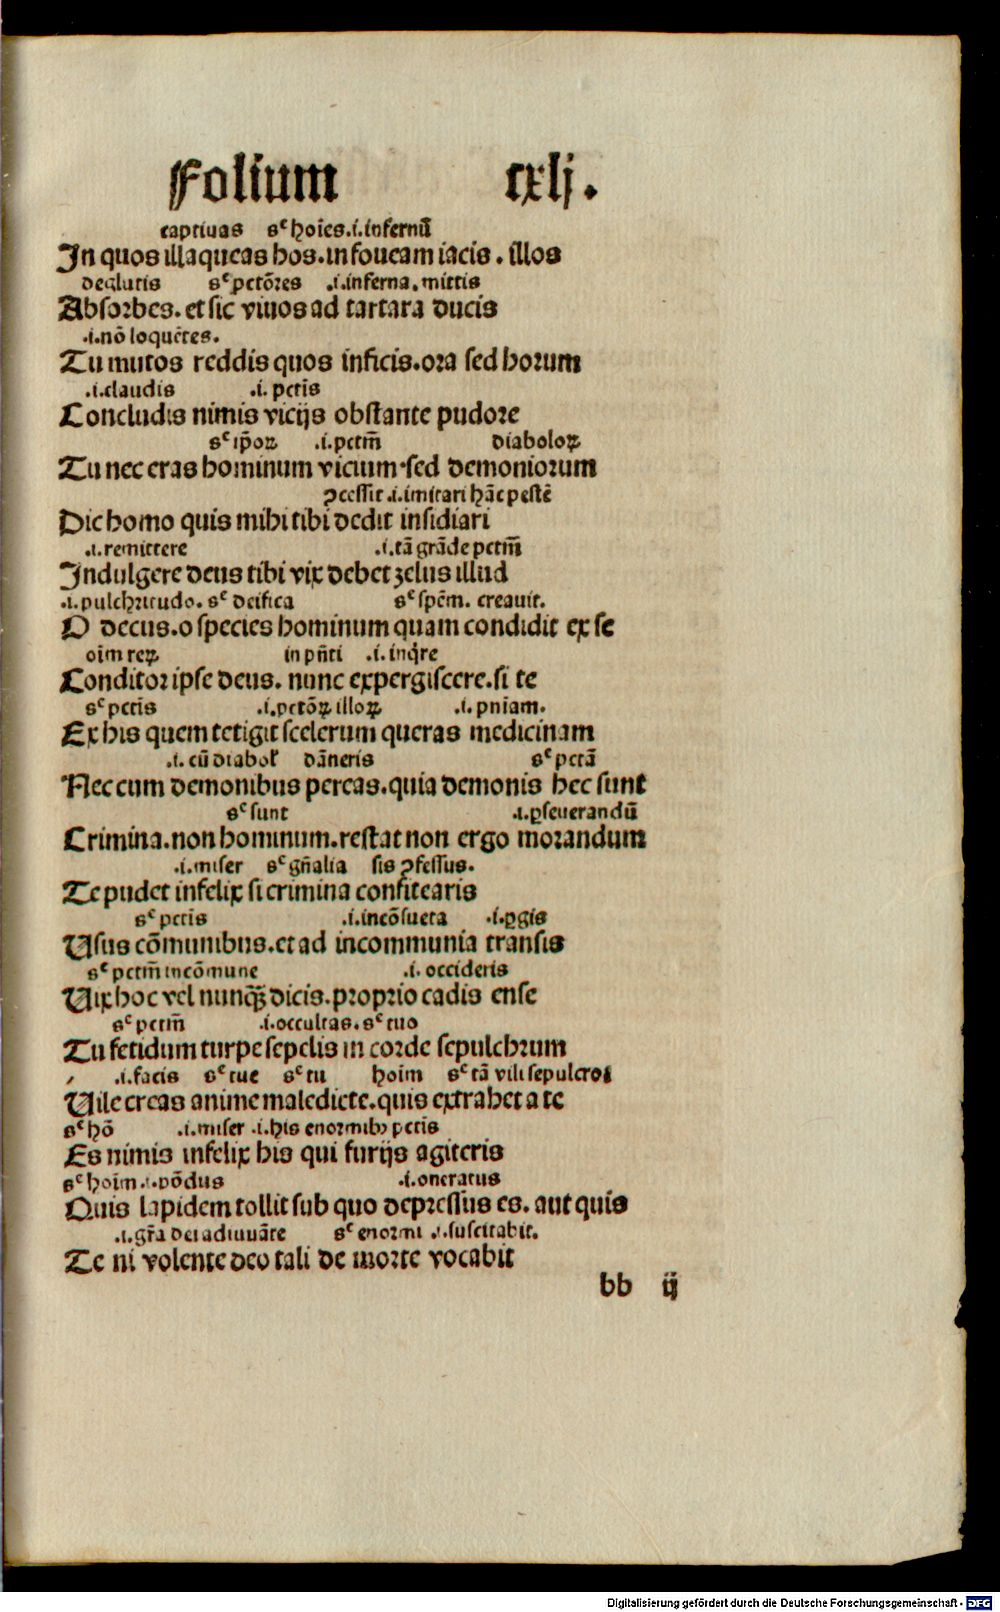 Folium cxlj.
captiuas sc hoīes.i.infernū
In quos illaqueas hos.in foueam iacis. illos
deglutis sc pctōres .i.inferna.mittis
Absorbes.et sic viuos ad tartara ducis
.i.nō loquētes.
Tu mutos reddis quos inficis.ora sed horum
.i.claudis .i. pctīs
Concludis nimis vicijs obstante pudore
sc ip̄oꝝ .i.pctm̄ diaboloꝝ
Tu nec eras hominum vicium.sed demoniorum
ꝯcessit .i.imitari hāc pestē
Dic homo quis mihi tibi dedit insidiari
.i.remittere .i.tā grāde pctm̄
Indulgere deus tibi vix debet zelus illud
.i.pulchritudo. sc deifica sc spēm. creauit.
O decus.o species hominum quam condidit ex se
oīm reꝝ in pn̄ti .i. inq̄re
Conditor ipse deus. nunc expergiscere.si te
sc pctīs .i.pctōꝝ illoꝝ .i. pniam.
Ex his quem tetigit scelerum queras medicinam
.i. cū diabol' dāneris sc pctā
Nec cum demonibus pereas.quia demonis hec sunt
sc sunt .i.ꝑseuerandū
Crimina.non hominum.restat non ergo morandum
.i.miser sc gn̄alia sis ꝯfessus.
Te pudet infelix si crimina confitearis
sc pctīs .i.incōsueta .i.ꝑgis
Usus cōmunibus.et ad incommunia transis
sc pctm̄ incōmune .i. occideris
Uix hoc vel nunqꝫ dicis.proprio cadis ense
sc pctm̄ .i.occultas.sc tuo
Tu fetidum turpe sepelis in corde sepulchrum
.i.facis sc tue sc tu hoīm sc tā vili sepulcro
Uile creas anime maledicte.quis extrahet a te
sc hō .i.miser .i.his enormibꝫ pctīs
Es nimis infelix his qui furijs agiteris
sc hoīm.i.pōdus .i.oneratus
Quis lapidem tollit sub quo depressus es. aut quis
.i.gr̄a dei adiuuāte sc enormi .i.suscitabit.
Te ni volente deo tali de morte vocabit
bb ij
Digitalisierung gefördert durch die Deutsche Forschungsgemeinschaft - DFG